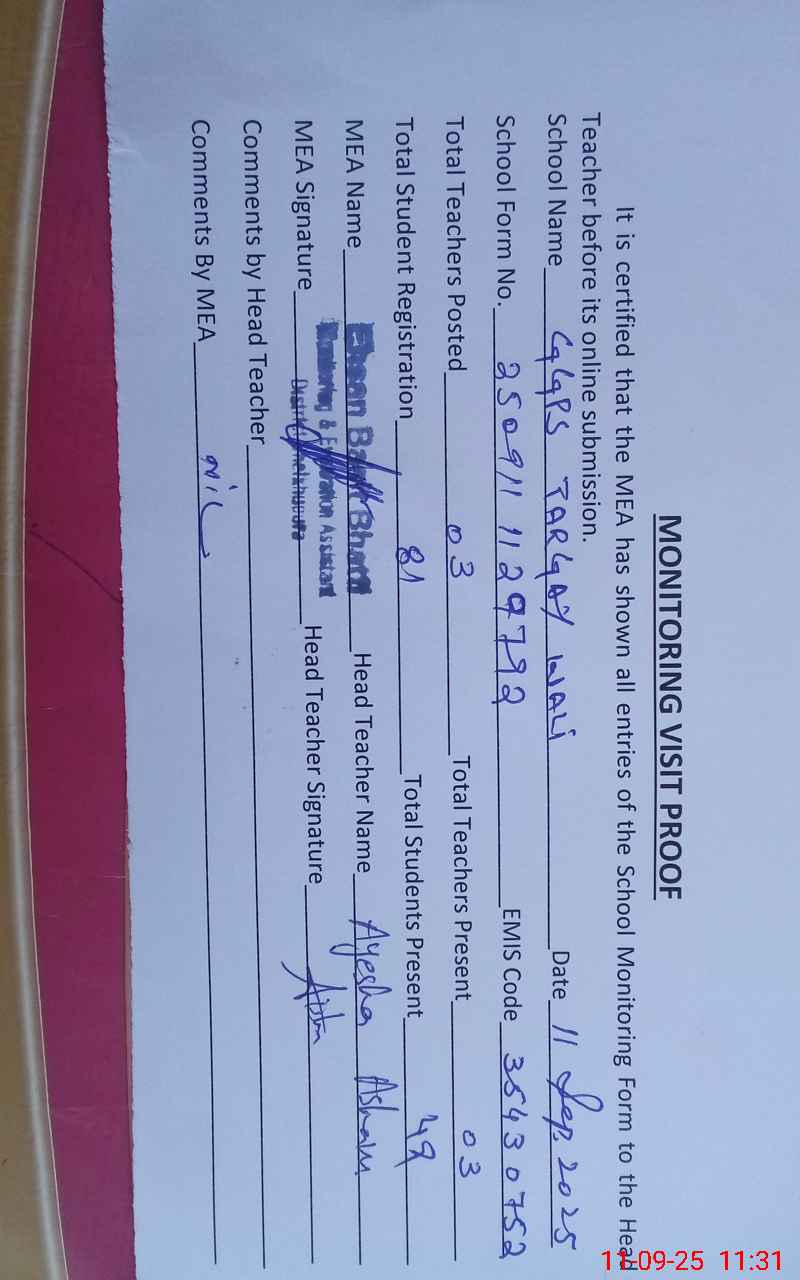 MONITORING VISIT PROOF
It is certified that the MEA has shown all entries of the School Monitoring Form to the Head
Teacher before its online submission.
School Name GGPS TARGAY WALI Date 11 Sep. 2025
School Form No. 250911 11297792 EMIS Code 35430752
Total Teachers Posted 03 Total Teachers Present 03
Total Student Registration 81 Total Students Present 49
MEA Name Bhatti Head Teacher Name Ayesha
Monitoring & Evaluation Assistant
MEA Signature District Head Teacher Signature
Comments by Head Teacher
Comments By MEA NiL
11-09-25 11:31